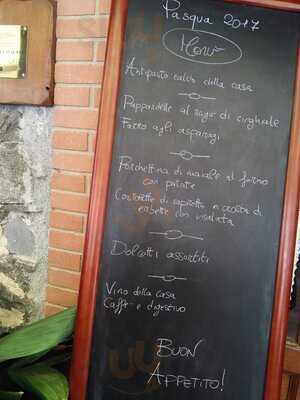 Pasqua 2017
Menù
Antipasto caldo della casa
Pappardelle al ragù di cinghiale
Farro agli asparagi
Porchettina di maiale al forno
con patate
Costolette di capretto in crosta di
erbette con insalata
Dolcetti assortiti
Vino della casa
Caffè e digestivo
BUON
APPETITO!